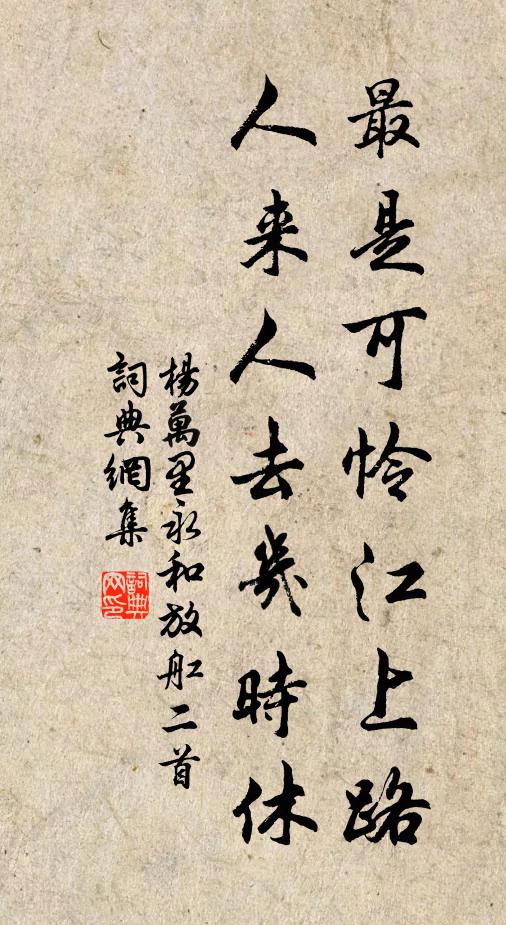 最是可怜江上路
人来人去几時休
楊萬里永和放舡二首
詞典網集
詞典
网印